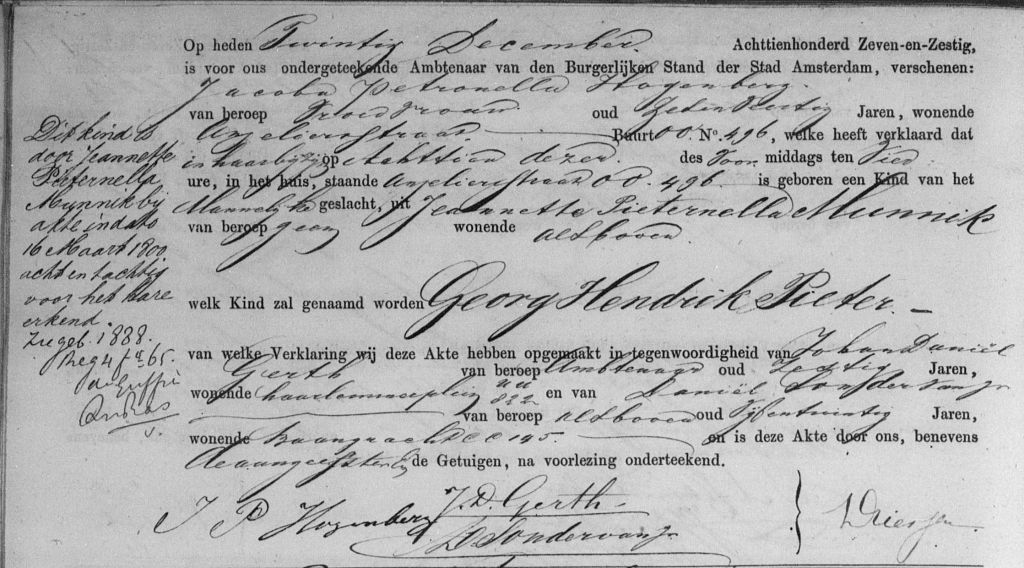 Op heden Twintig December. Achttienhonderd Zeven-en-Zestig,
is voor ons ondergeteekende Ambtenaar van den Burgerlijken Stand der Stad Amsterdam, verschenen:
Jacoba Petronella Hogenberg.
van beroep Vroedvrouw oud Zeven Veertig Jaren, wonende
Anjelierstraat Buurt OO. No. 496, welke heeft verklaard dat
in haar bijzijn op Achttien dezer. des Voor middags ten Vier
ure, in het huis, staande Anjelierstraat OO. 496. is geboren een Kind van het
Mannelijke geslacht, uit Jeannette Pieternella Munnik
van beroep geen wonende
als boven.
welk Kind zal genaamd worden Georg Hendrik Pieter.
van welke Verklaring wij deze Akte hebben opgemaakt in tegenwoordigheid van Johan Daniël
Gerth van beroep Ambtenaar oud Zestig Jaren,
wonende Haarlemmerplein UU 822 en van Daniël Sondervan Jr
van beroep als boven oud Vijfentwintig Jaren,
wonende CC 195. en is deze Akte door ons, benevens
de aangeefster en de Getuigen, na voorlezing onderteekend.
J P Hogenberg J. D. Gerth.
D Sondervan Jr
Dit kind is
door Jeannette
Pieternella
Munnik by
akte in dato
16 Maart 1800
acht en tachtig
voor het hare
erkend.
Zie geb. 1888.
Reg 4 fo 65.
de Griffier